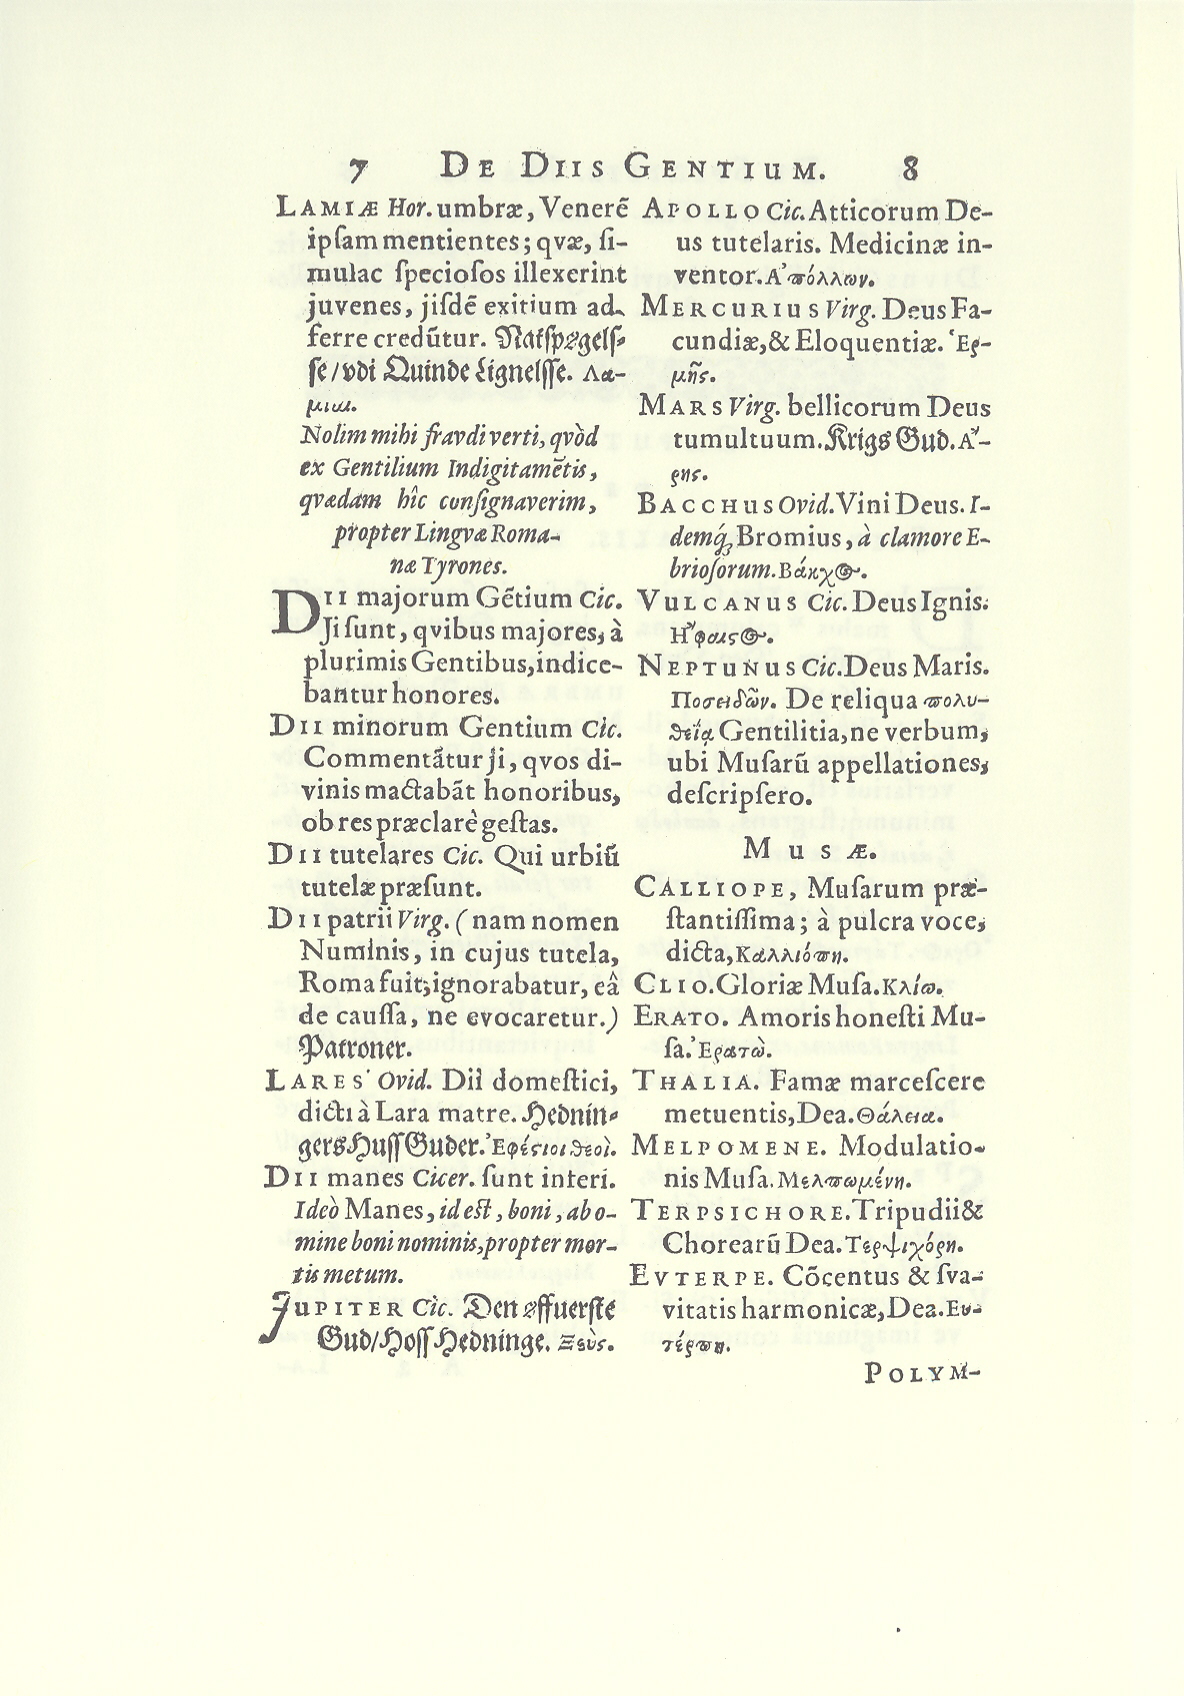 7 DE DIIS GENTIUM. 8
LAMIÆ Hor. umbræ, Venerē
ipſam mentientes; qvæ, ſi-
mulac ſpecioſos illexerint
juvenes, jiſdē exitium ad-
ferre credūtur. Natſpøgelſ-
ſe/ udi Quinde Lignelſſe. Λα-
μιαι.
Nolim mihi fravdi verti, qvòd
ex Gentilium Indigitamētis,
qvædam hîc conſignaverim,
propter Lingvæ Roma-
næ Tyrones.
DII majorum Gētium Cic.
Ji ſunt, qvibus majores, à
plurimis Gentibus, indice-
bantur honores.
DII minorum Gentium Cic.
Commentātur ji, qvos di-
vinis mactabāt honoribus,
ob res præclarè geſtas.
DII tutelares Cic. Qui urbiū
tutelæ præſunt.
DII patrii Virg. (nam nomen
Numinis, in cujus tutela,
Roma fuit, ignorabatur, eâ
de cauſſa, ne evocaretur.)
Patroner.
LARES Ovid. Dii domeſtici,
dicti à Lara matre. Hednin-
gers Huſſ Guder. Ἐφέςιοι θεοὶ.
DII manes Cicer. ſunt inferi.
Ideò Manes, id eſt, boni, ab o-
mine boni nominis, propter mor-
tis metum.
JUPITER Cic. Den øffuerſte
Gud/ Hoſſ Hedninge. Ζεὺς.
APOLLO Cic. Atticorum De-
us tutelaris. Medicinæ in-
ventor. Α᾽πόλλων.
MERCURIUS Virg. Deus Fa-
cundiæ, & Eloquentiæ. Ἑρ-
μῆς.
MARS Virg. bellicorum Deus
tumultuum. Krigs Gud. Ἄ-
ρης.
BACCHUS Ovid. Vini Deus. I-
demq́; Bromius, à clamore E-
brioſorum. Βάκχος.
VULCANUS Cic. Deus Ignis.
Ἥφαιςος.
NEPTUNUS Cic. Deus Maris.
Ποσειδῶν. De reliqua πολυ-
θείᾳ Gentilitia, ne verbum,
ubi Muſarū appellationes,
deſcripſero.
MUSÆ.
CALLIOPE, Muſarum præ-
ſtantiſſima; à pulcra voce,
dicta, Καλλιόπη.
CLIO. Gloriæ Muſa. Κλίω.
ERATO. Amoris honeſti Mu-
ſa. Ἐρατὼ.
THALIA. Famæ marceſcere
metuentis, Dea. Θάλεια.
MELPOMENE. Modulatio-
nis Muſa. Μελπωμένη.
TERPSICHORE. Tripudii &
Chorearū Dea. Τερψιχόρη.
EVTERPE. Cōcentus & ſva-
vitatis harmonicæ, Dea. Ευ-
τέρπη.
POLYM-